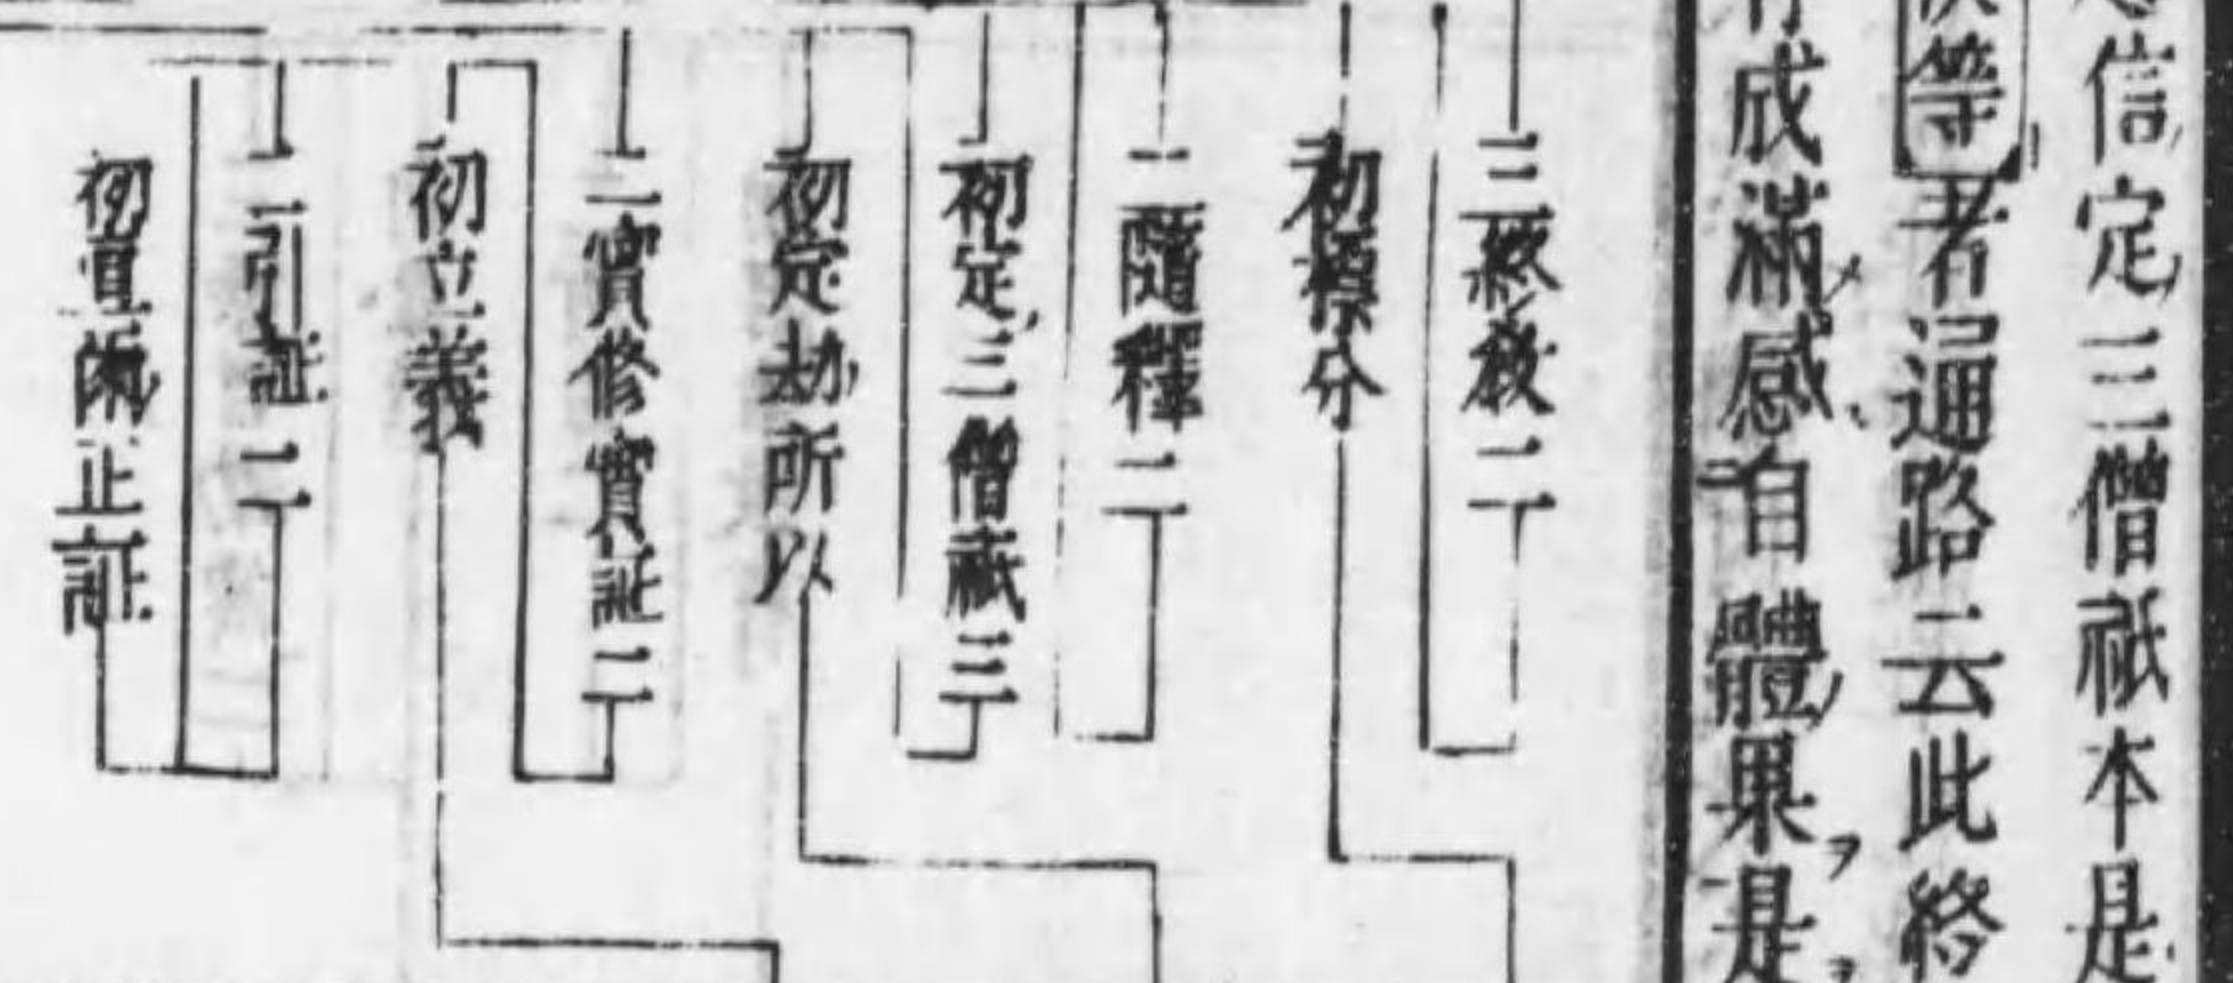 信定三僧祇本是
等者通路云此終
成滿感自體果是
三終教二
初標分
二隨釋二
初定三僧祇三
初定劫所以
二實修實証二
初立義
二引証二
初直陳正証